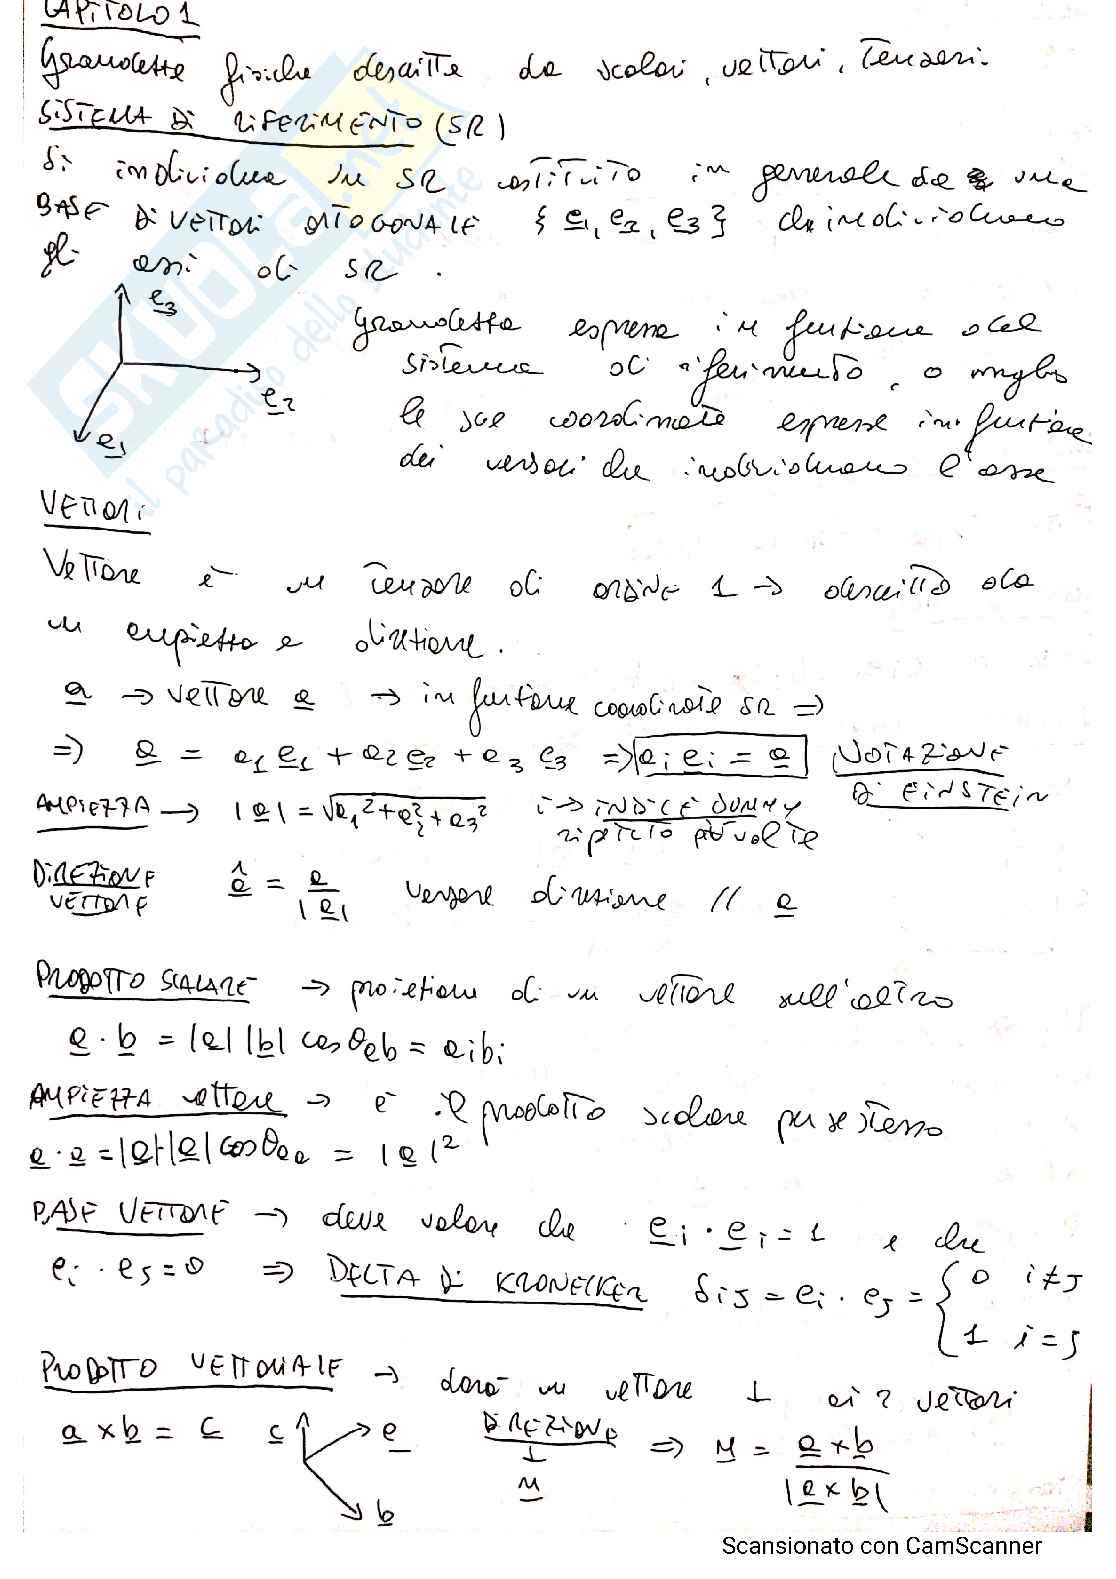 CAPITOLO 1
Grandezze fisiche descritte da scalari, vettori, Tensori.
SISTEMA DI RIFERIMENTO (SR)
Si individua un SR costituito in generale da una
BASE DI VETTORI ORTOGONALE {e1, e2, e3} che individuano
gli assi di SR.
e3
e2
e1
Grandezza espressa in funzione del
sistema di riferimento, o meglio
le sue coordinate espresse in funzione
dei versori che individuano l'asse
VETTORI
Vettore è un Tensore di ORDINE 1 → descritto da
un ampiezza e direzione.
a → vettore a → in funzione coordinate SR ⇒
⇒ a = a1 e1 + a2 e2 + a3 e3 ⇒ ai ei = a NOTAZIONE
DI EINSTEIN
AMPIEZZA → |a| = √a1² + a2² + a3² i → INDICE DUMMY
ripetuto più volte
DIREZIONE
VETTORE
â = a / |a| versore direzione // a
PRODOTTO SCALARE → proiezione di un vettore sull'altro
a · b = |a| |b| cos θab = aibi
AMPIEZZA vettore → è il prodotto scalare per se stesso
a · a = |a| |a| cos θaa = |a|²
BASE VETTORE → deve valere che ei · ei = 1 e che
ei · ej = 0 ⇒ DELTA DI KRONECKER δij = ei · ej = { 0 i≠j
1 i=j
PRODOTTO VETTORIALE → darà un vettore ⊥ ai 2 vettori
a × b = c c a b DIREZIONE ⊥ n ⇒ n = a × b / |a × b|
Scansionato con CamScanner
SKUOLA.net
il paradiso dello studente